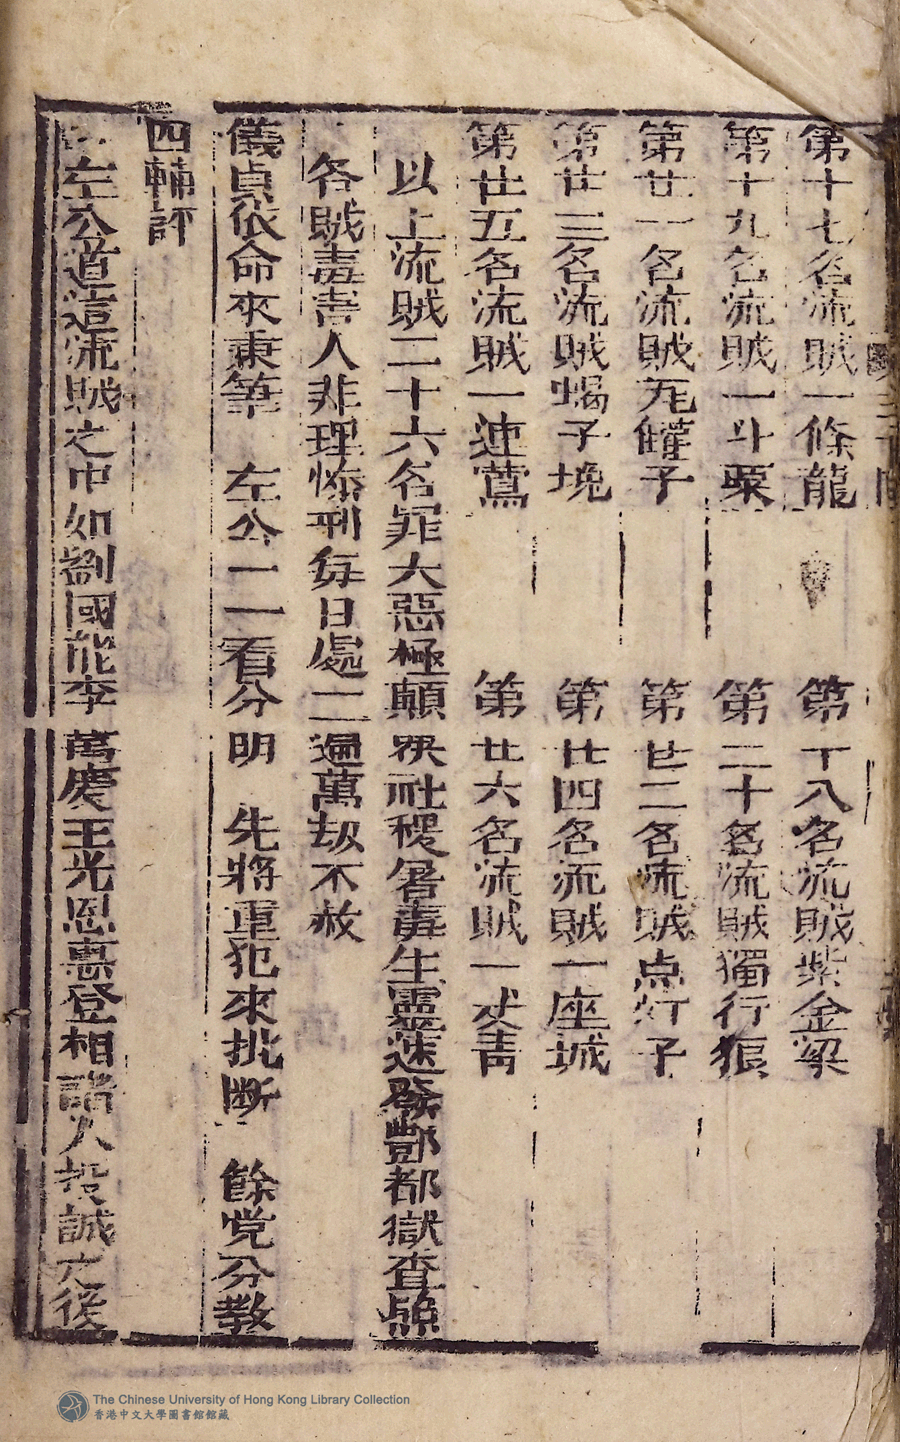 第十七名流賊一條龍　第十八名流賊紫金梁
第十九名流賊一斗粟　第二十名流賊獨行狼
第廿一名流賊瓦罐子　第廿二名流賊点灯子
第廿三名流賊蝎子塊　第廿四名流賊一座城
第廿五名流賊一連鶯　第廿六名流賊一丈青
以上流賊二十六名罪大惡極顛喪社稷暑毒生靈速發酆都獄查照
各賊毒害人非理慘刑每日處二遍萬劫不赦
儀貞依命來秉筆　左公一一看分明　先將重犯來批斷　餘党分教
四輔評
左公道這流賊之中如劉國能李萬慶王光恩惠登相諸人投誠之後
The Chinese University of Hong Kong Library Collection
香港中文大學圖書館館藏